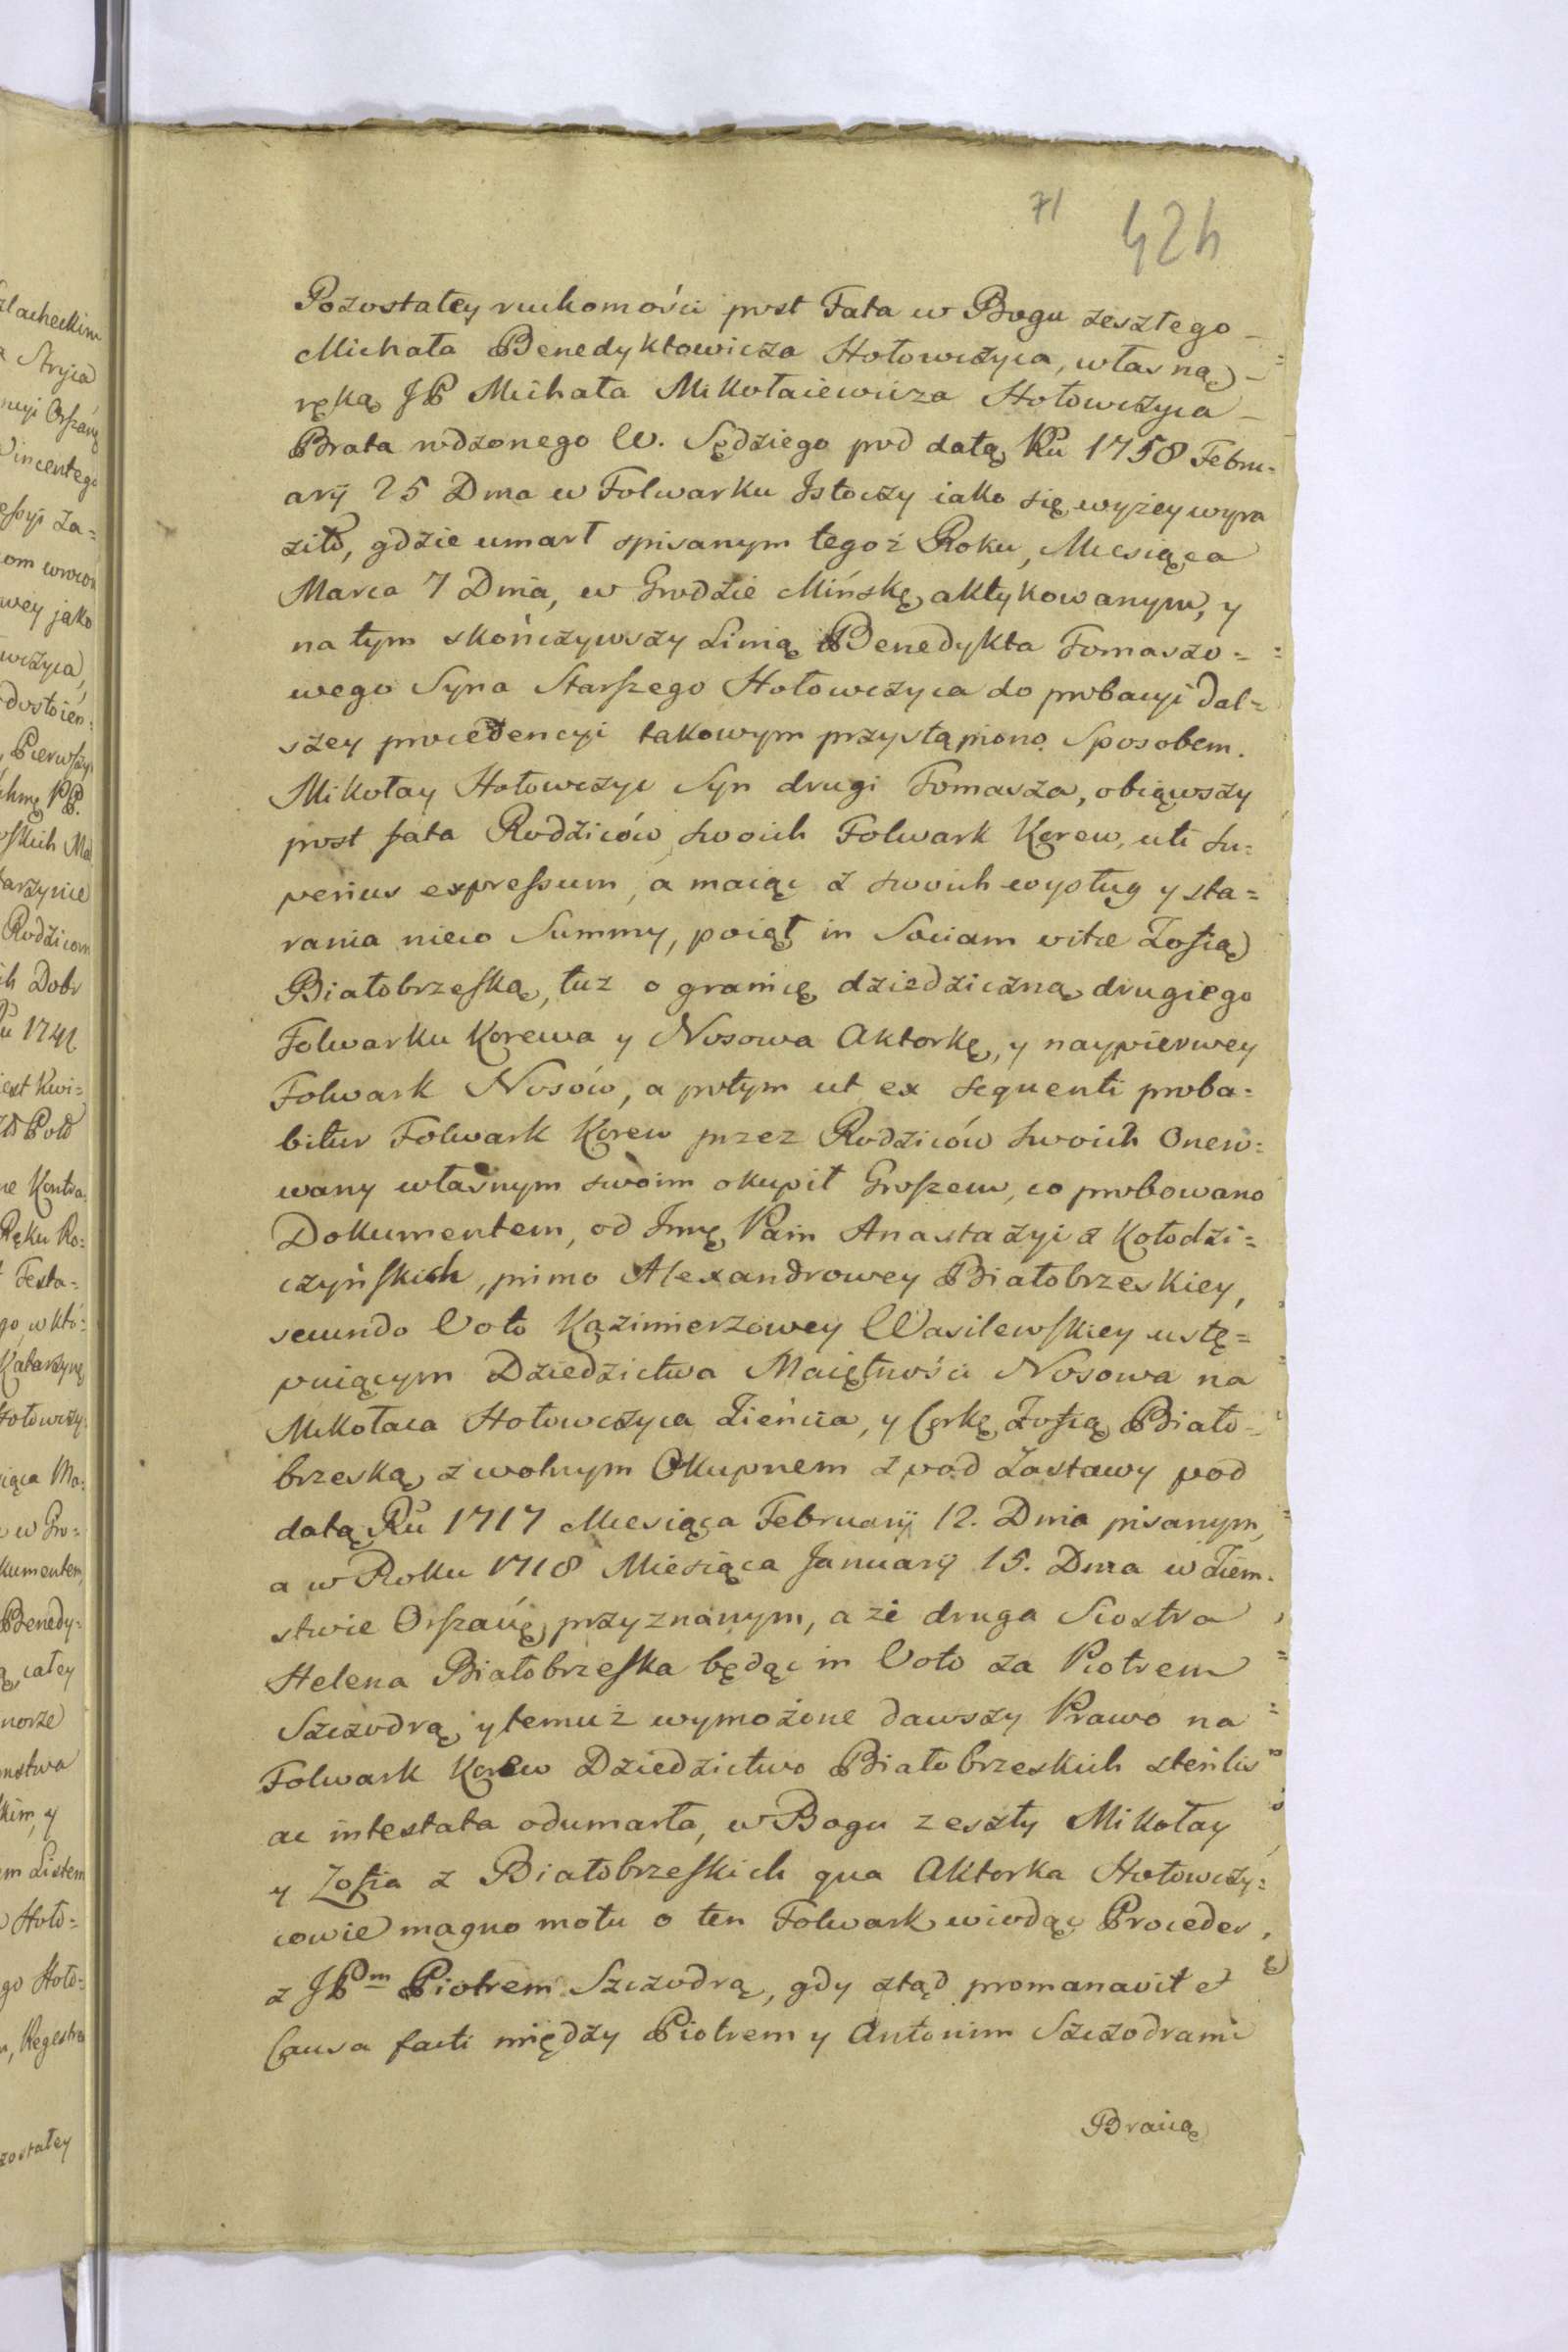 71 424
Pozostałey ruchomości post Fata w Bogu zeszłego –
Michała Benedyktowicza Hołowczyca, własną –
ręką JP Michała Mikołaiewicza Hołowczyca –
Brata rodzonego W. Sędziego pod datą Ru 1758 Febru-
arij 25 Dnia w Folwarku Istoczy iako się wyżey wyra
ziło, gdzie umarł spisanym tegoż Roku, Miesiąca
Marca 7 Dnia, w Grodzie Mińskę aktykowanym, y
na tym skończywszy Linią Benedykta Tomaszo=
wego Syna Starszego Hołowczyca do probacyi dal=
szey procedencyi takowym przystąpiono Sposobem.
Mikołay Hołowczyc Syn drugi Tomasza, obiąwszy
post fata Rodziców swoich Folwark Korew, uti su=
perius expressum, a maiąc z swoich wysług y sta=
rania nieco Summy, poiął in Sociam vitæ Zofią
Białobrzeską, tuż o granicę dziedziczną drugiego
Folwarku Korewa y Nosowa Aktorkę, y naypierwey
Folwark Nosów, a potym ut ex sequenti proba=
bitur Folwark Korew przez Rodziców swoich Onero=
wany własnym swoim okupił Groszem, co probowano
Dokumentem, od Imę Pani Anastazyi z Kołodzi=
czyńskich, primo Alexandrowey Białobrzeskiey,
secundo Voto Kazimierzowey Wasilewskiey ustę=
puiącym Dziedzictwa Maiętności Nosowa na
Mikołaia Hołowczyca Zięcia, y Corkę Zofią Biało=
brzeską z wolnym Okupnem z pod Zastawy pod
datą Ru 1717 Miesiąca Februarij 12. Dnia pisanym,
a w Roku 1718 Miesiąca Januarij 15. Dnia w Ziem=
stwie Orszańę przyznanym, a że druga Siostra
Helena Białobrzeska będąc in Voto za Piotrem
Szczodrą y temuż wymożone dawszy Prawo na
Folwark Korew Dziedzictwo Białobrzeskich sterilis
ac intestata odumarła, w Bogu zeszły Mikołay
y Zofia z Białobrzeskich qua Aktorka Hołowczy=
cowie magno motu o ten Folwark wiodąc Proceder,
z JPm Piotrem Szczodrą, gdy ztąd promanavit et
Causa facti między Piotrem y Antonim Szczodrami
Bracią